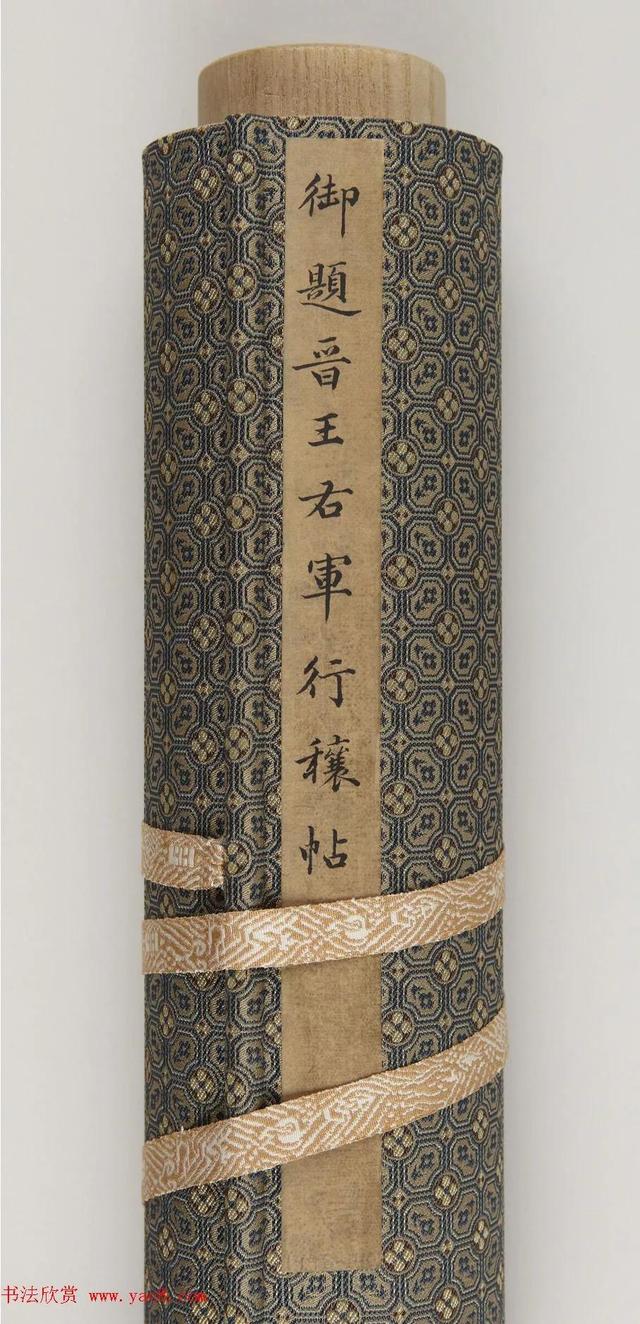 御題晉王右軍行穰帖
书法欣赏 www.yac8.com